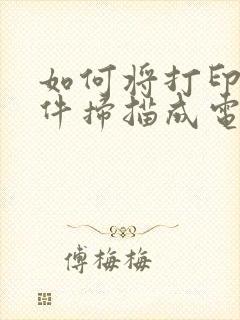 如何将打印
件掃描成電
傅梅梅